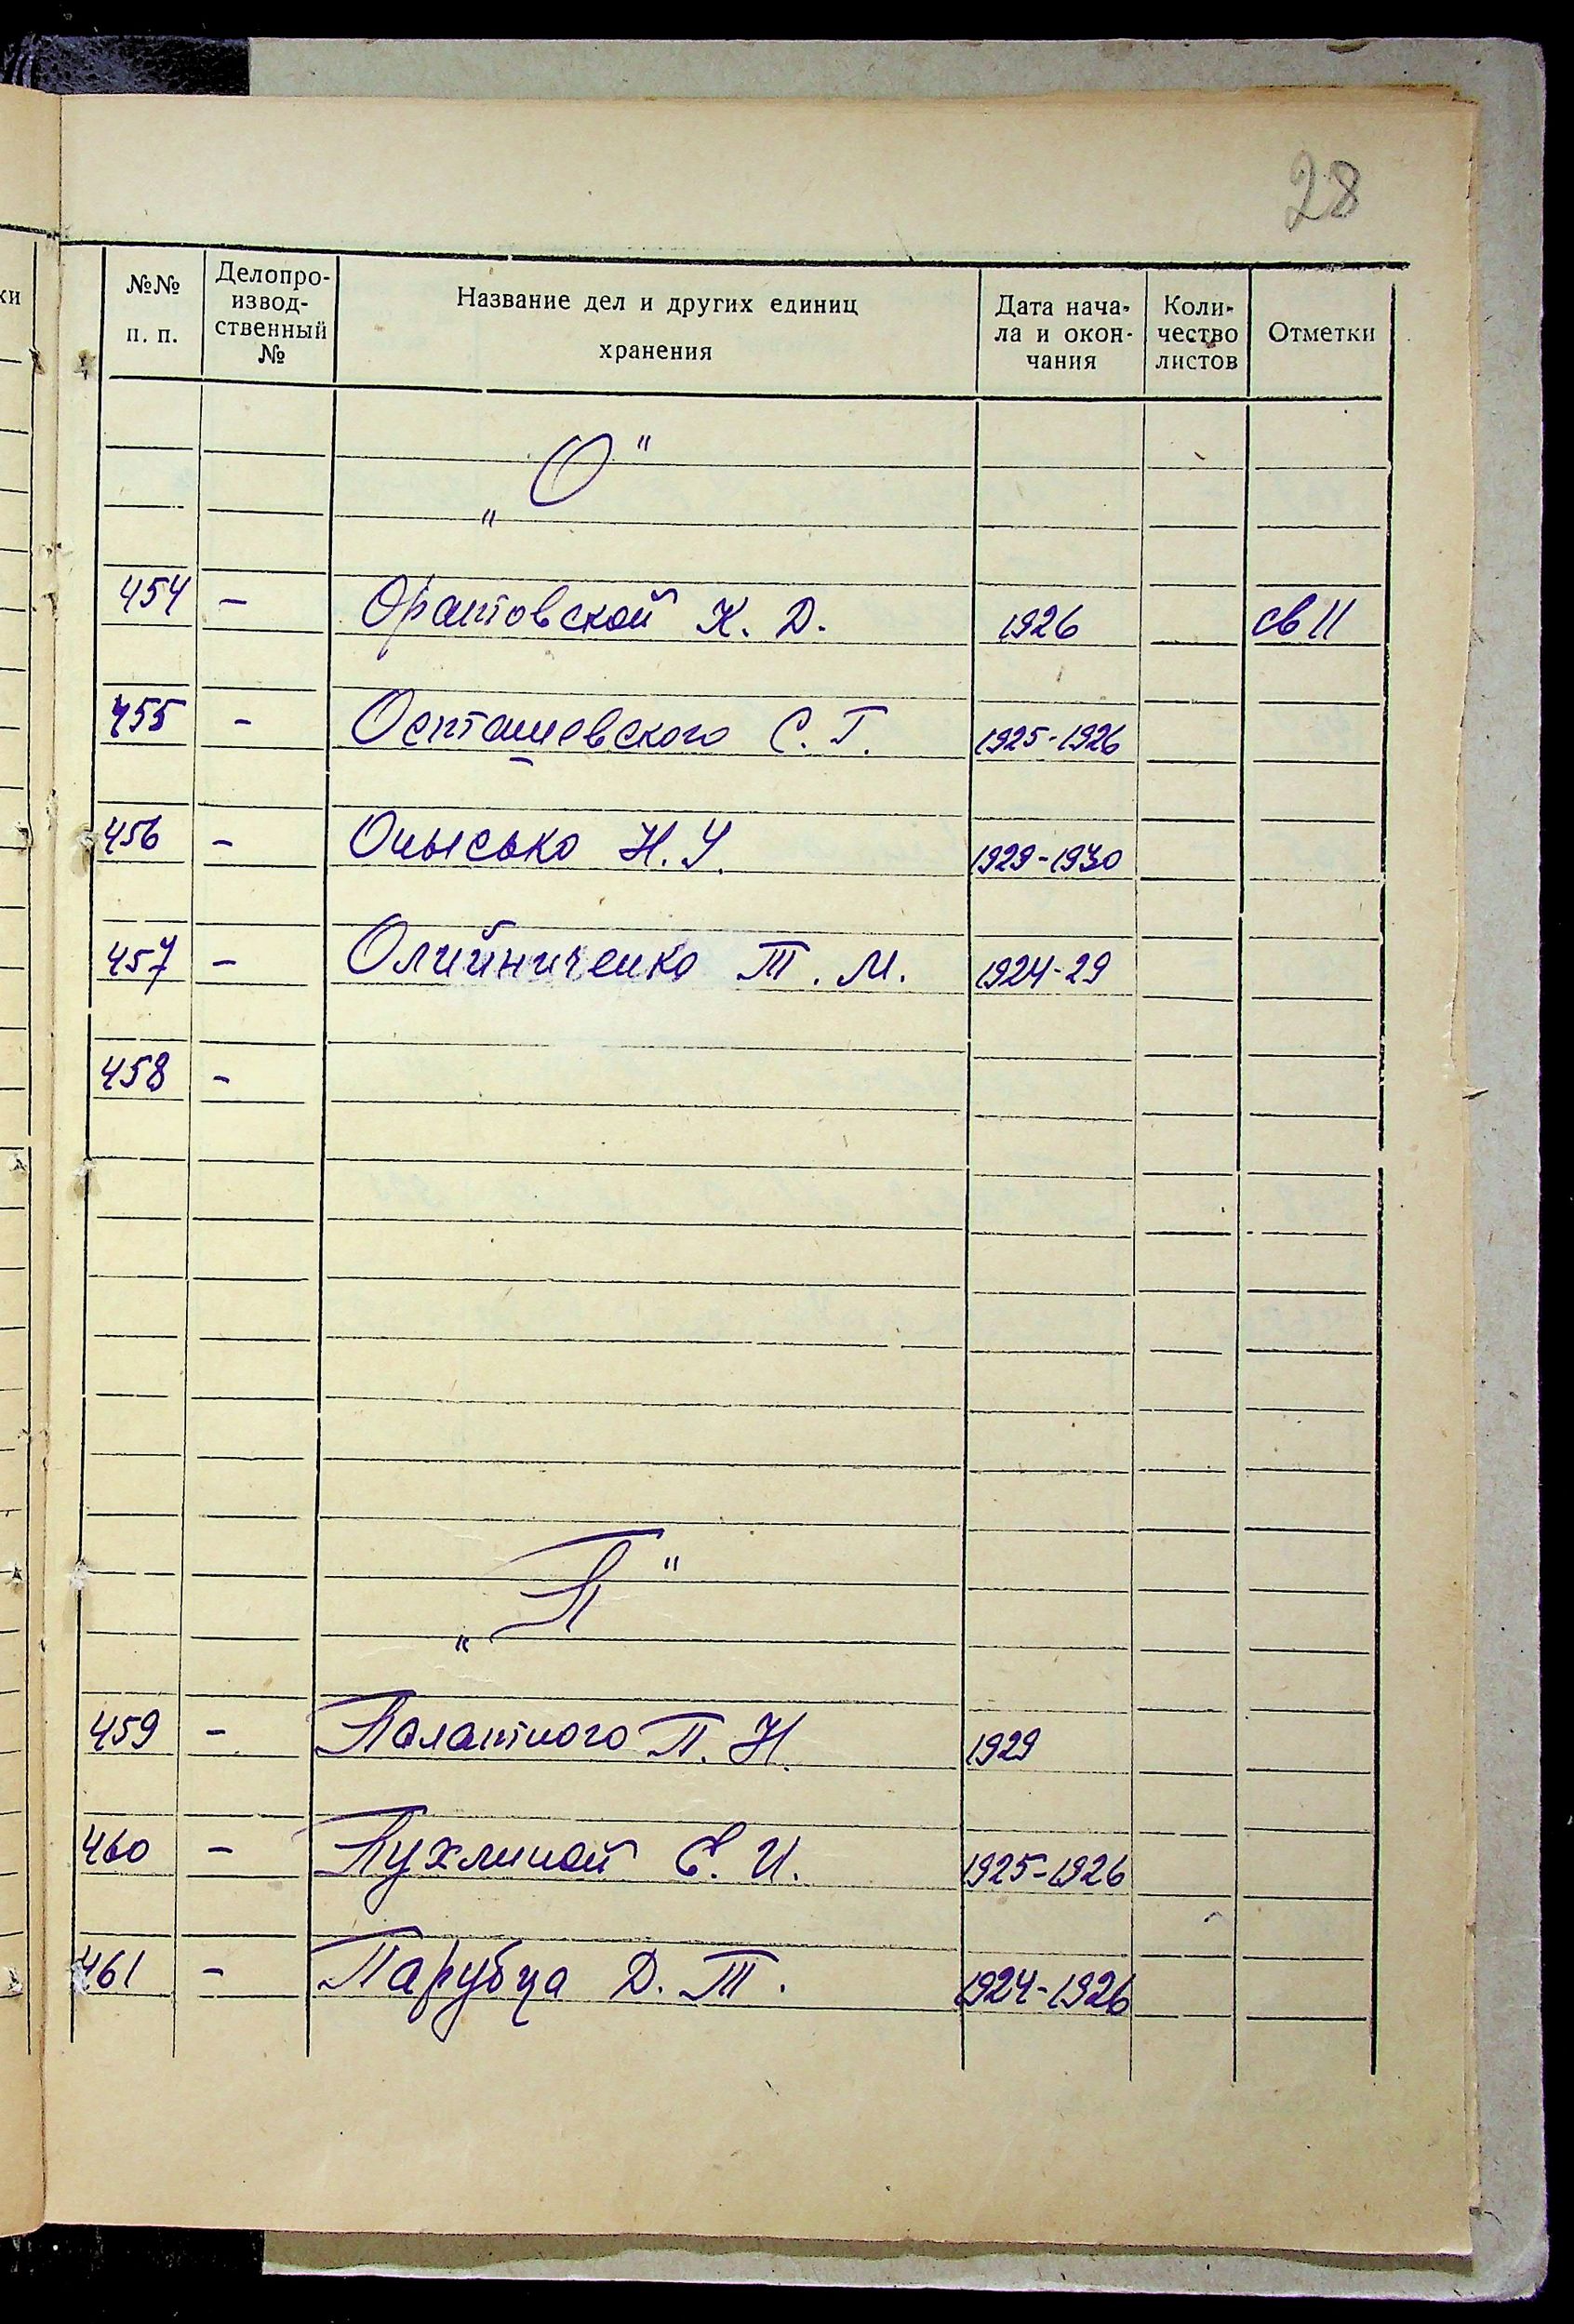 28
ки
№№ п. п. Делопро-извод-ственный № Название дел и других единиц хранения Дата нача-ла и окон-чания Коли-чество листов Отметки
„О“
454 - Оратовской К. Д. 1926 св 11
455 - Осташевского С. Г. 1925-1926
456 - Онысько Н. У. 1929-1930
457 - Олийниченко Т. М. 1924-29
458 -
„П“
459 - Палатного П. Н. 1929
460 - Пухлиной Е. И. 1925-1926
461 - Парубца Д. Т. 1924-1926